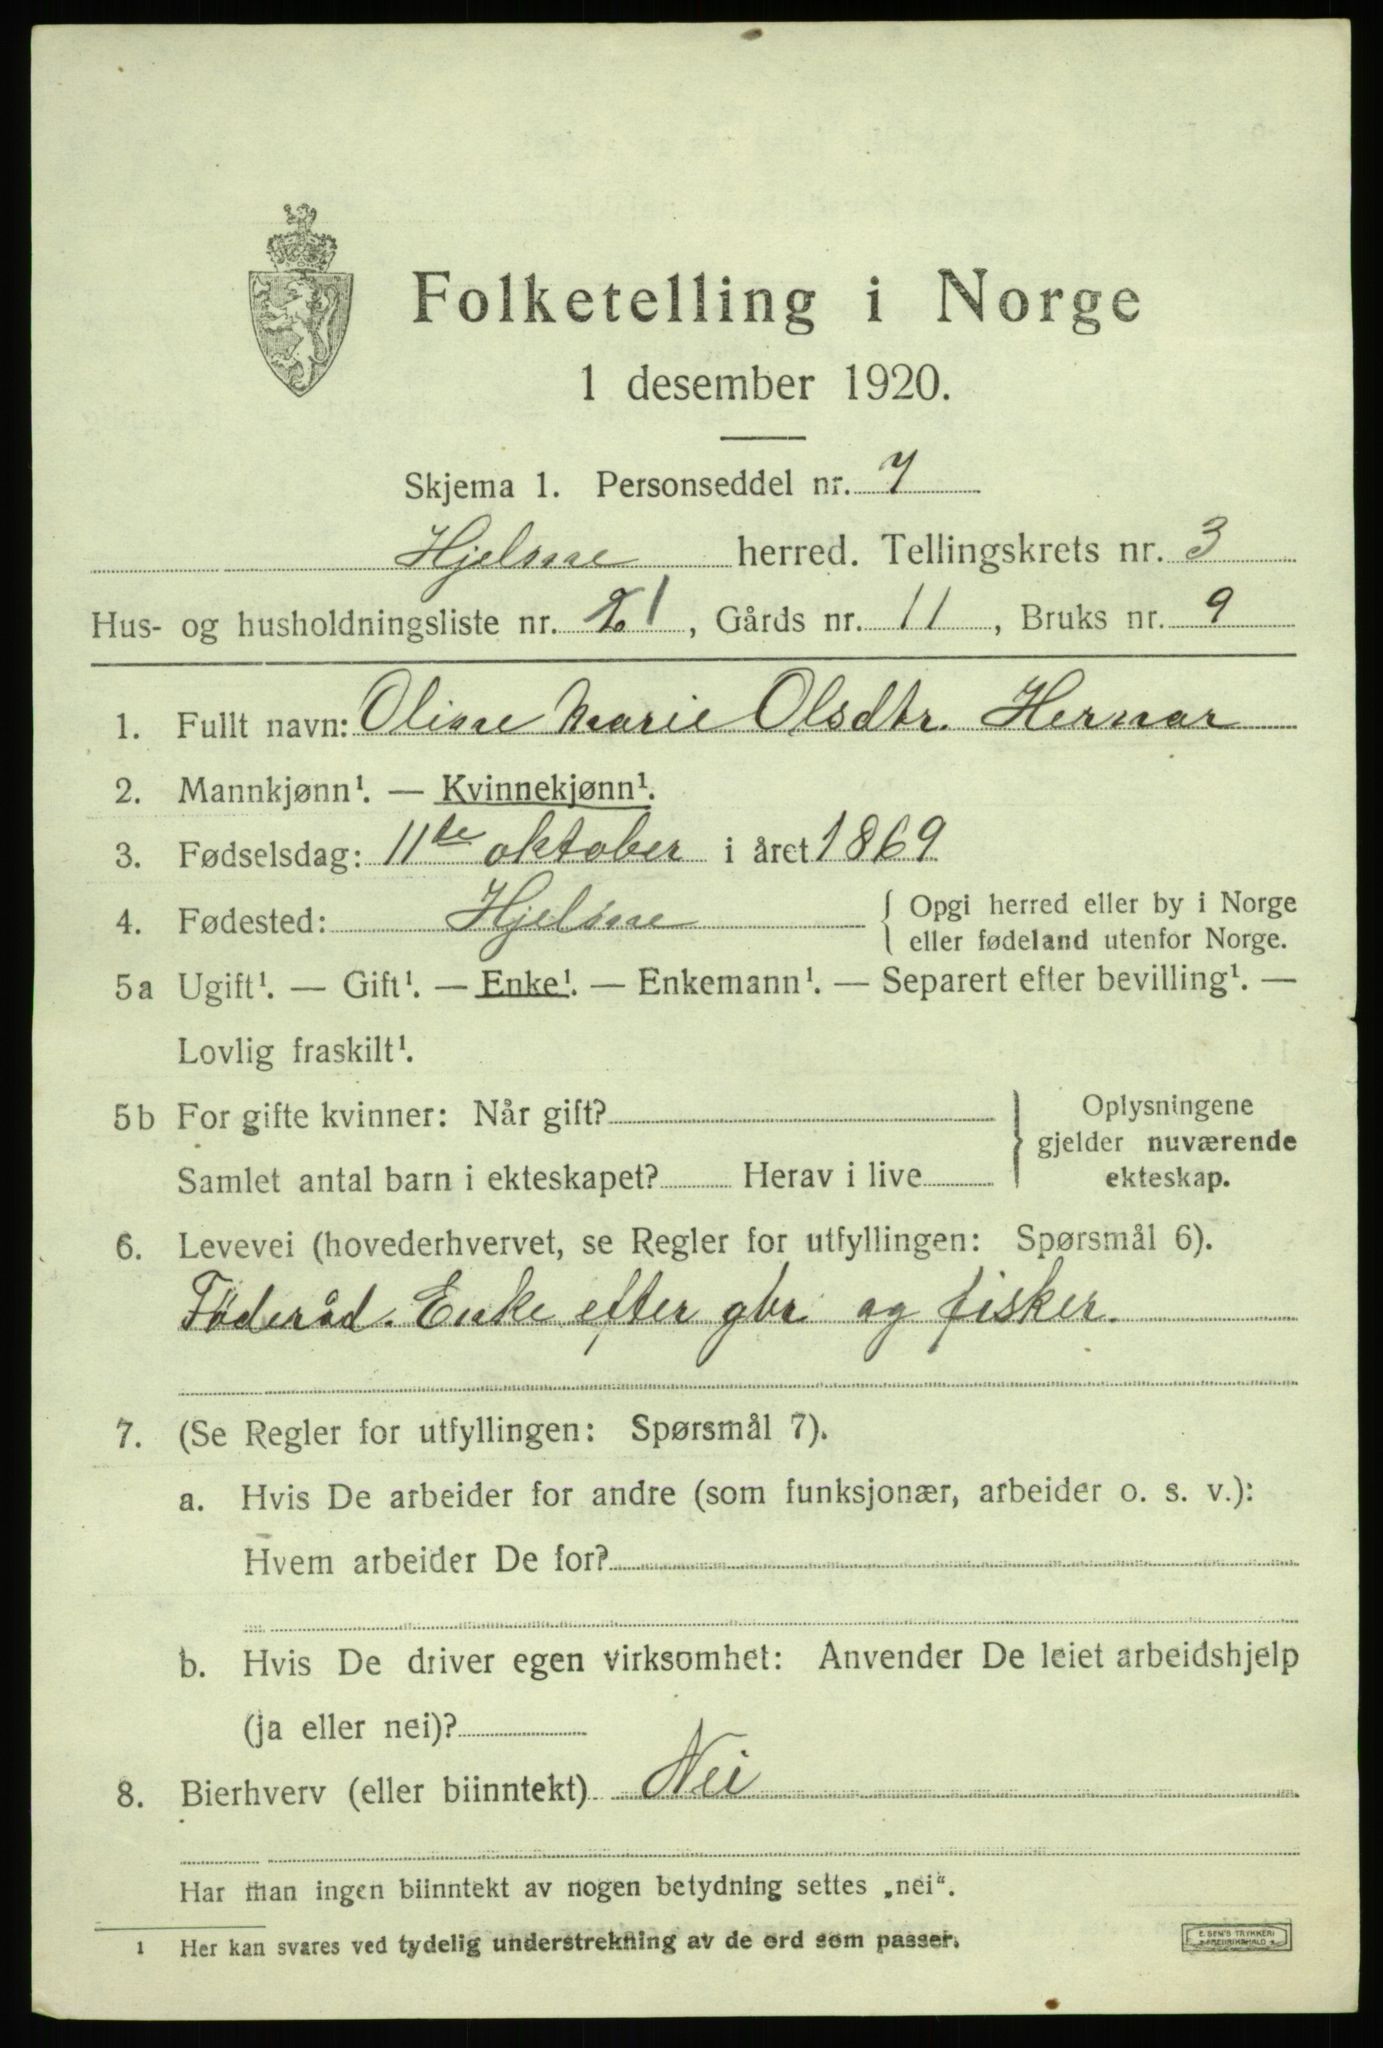 Folketelling i Norge
1 desember 1920.
Skjema 1. Personseddel nr. 7
Hjelme herred. Tellingskrets nr. 3
Hus- og husholdningsliste nr. 21, Gårds nr. 11, Bruks nr. 9
1. Fullt navn: Oline Marie Olsdtr. Hernar
2. Mannkjønn¹. — Kvinnekjønn¹.
3. Fødselsdag: 11te oktober i året 1869
4. Fødested: Hjelme { Opgi herred eller by i Norge
eller fødeland utenfor Norge.
5a Ugift¹. — Gift¹. — Enke¹. — Enkemann¹. — Separert efter bevilling¹. —
Lovlig fraskilt¹.
5b For gifte kvinner: Når gift? } Oplysningene
gjelder nuværende
Samlet antal barn i ekteskapet? Herav i live ekteskap.
6. Levevei (hovederhvervet, se Regler for utfyllingen: Spørsmål 6).
Føderåd. Enke efter gbr. og fisker.
7. (Se Regler for utfyllingen: Spørsmål 7).
a. Hvis De arbeider for andre (som funksjonær, arbeider o. s. v.):
Hvem arbeider De for?
b. Hvis De driver egen virksomhet: Anvender De leiet arbeidshjelp
(ja eller nei)?
8. Bierhverv (eller biinntekt) Nei
Har man ingen biinntekt av nogen betydning settes „nei".
1 Her kan svares ved tydelig understrekning av de ord som passer.
E. SEM'S TRYKKERI
FREDRIKSHALD